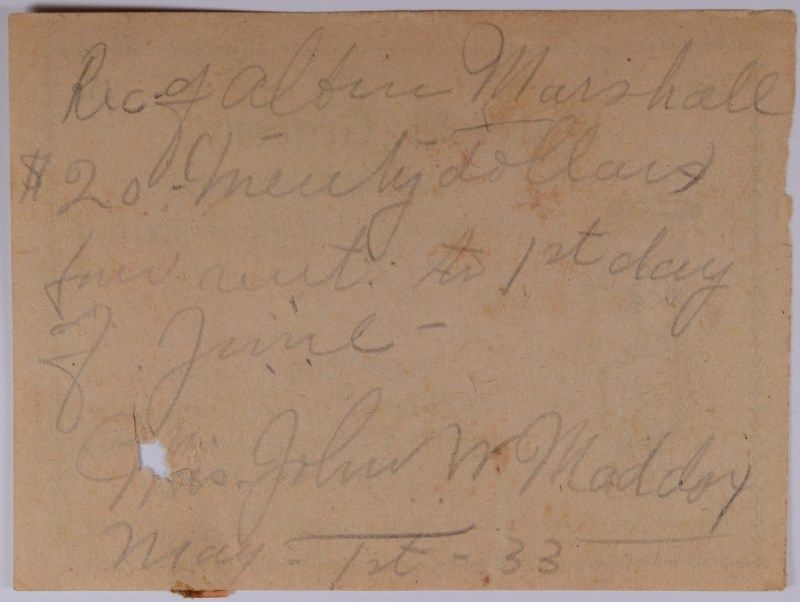 Rec of Altin Marshall
$20 - Twenty dollars
for rent. to 1st day
of June -
Mrs. John W Maddox
May - 1st - 33